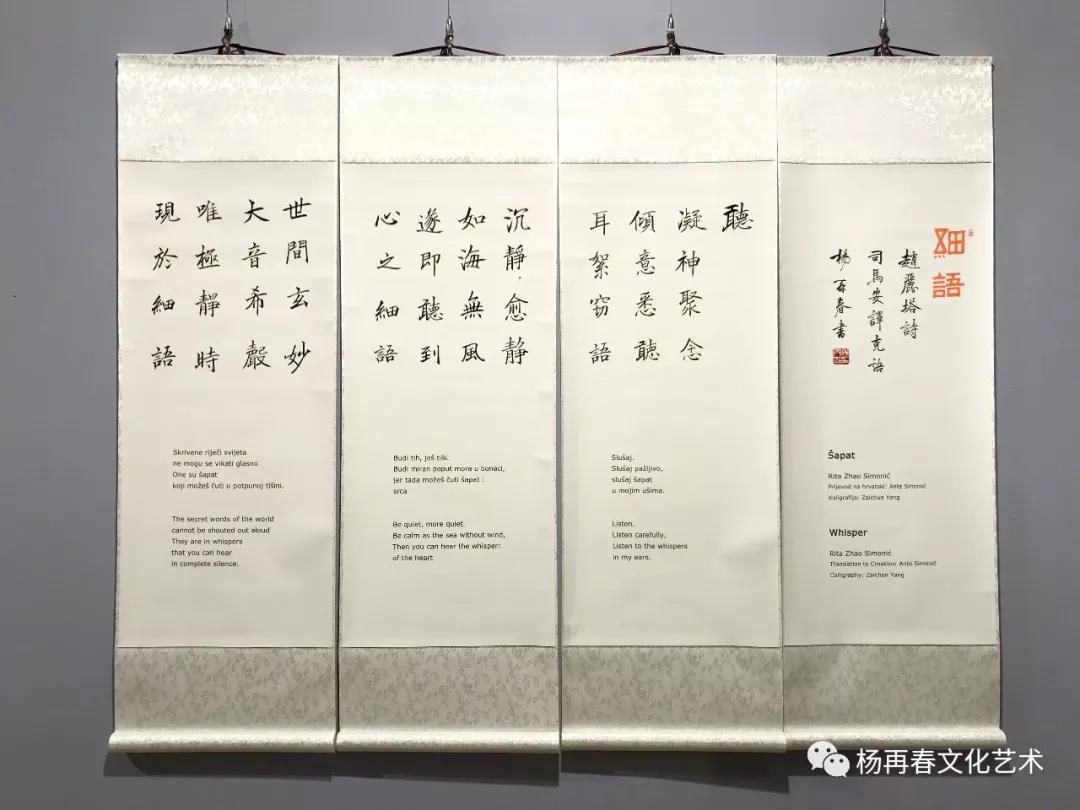 細語
趙麗塔詩
司馬安譯克語
楊再春書
Šapat
Rita Zhao Simonić
Prijevod na hrvatski: Ante Simonić
Kaligrafija: Zaichun Yang
Whisper
Rita Zhao Simonić
Translation to Croatian: Ante Simonić
Calligraphy: Zaichun Yang
聽
凝神聚念
傾意悉聽
耳絮窃語
Slušaj.
Slušaj pažljivo,
slušaj šapat
u mojim ušima.
Listen.
Listen carefully,
Listen to the whispers
in my ears.
沉靜，愈静
如海無風
遂即聽到
心之細語
Budi tih, još tiši.
Budi miran poput mora u bonaci,
jer tada možeš čuti šapat :
srca
Be quiet, more quiet.
Be calm as the sea without wind,
Then you can hear the whisper:
of the heart
世間玄妙
大音希聲
唯極靜時
現於細語
Skrivene riječi svijeta
ne mogu se vikati glasno
One su šapat
koji možeš čuti u potpunoj tišini.
The secret words of the world
cannot be shouted out aloud
They are in whispers
that you can hear
in complete silence.
杨再春文化艺术